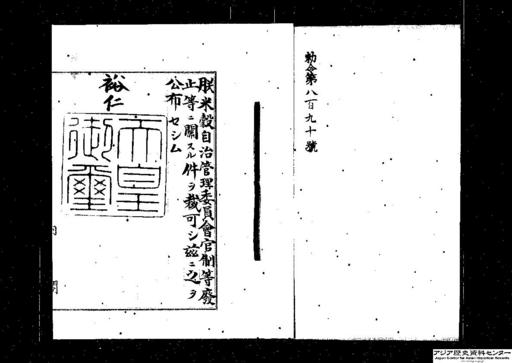 勅令第八百九十號
朕米穀自治管理委員會官制等廢
止等ニ關スル件ヲ裁可シ茲ニ之ヲ
公布セシム
裕仁
天皇
御璽
内閣
アジア歴史資料センター
Japan Center for Asian Historical Records